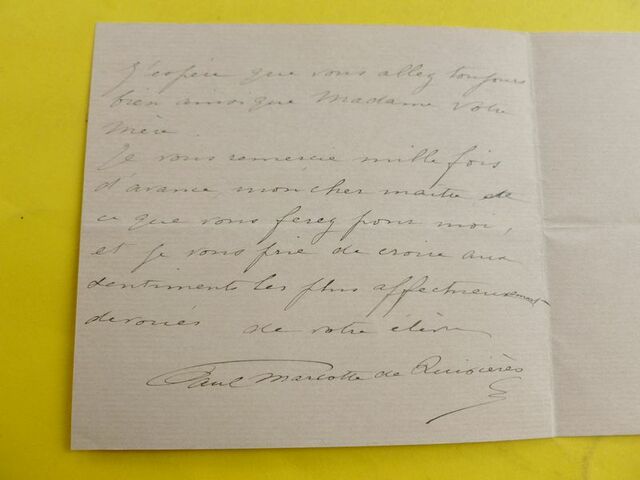 J'espère que vous allez toujours
bien ainsi que Madame votre
Mère.
Je vous remercie mille fois
d'avance, mon cher maître, de
ce que vous ferez pour moi,
et je vous prie de croire aux
sentiments les plus affectueusement
dévoués de votre élève
Paul Marcotte de Quivières